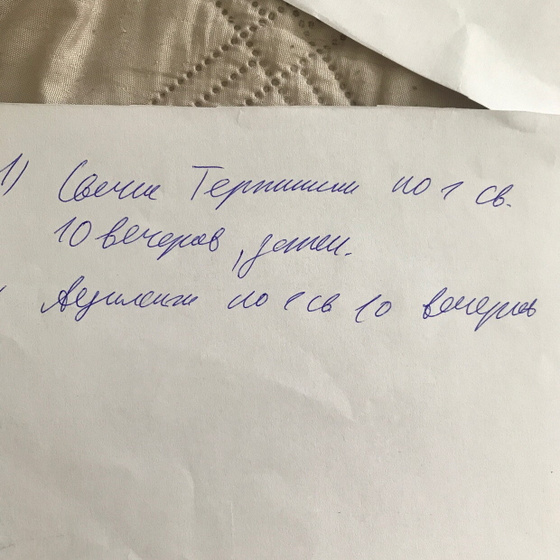 1) Свечи Тержинан по 1 св.
10 вечеров, затем.
Ацилакт по 1 св 10 вечеров